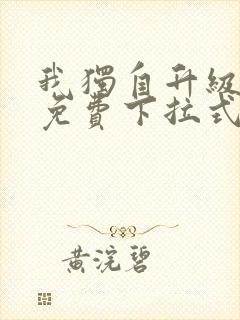 我獨自升級
免費下拉式
黃浣碧